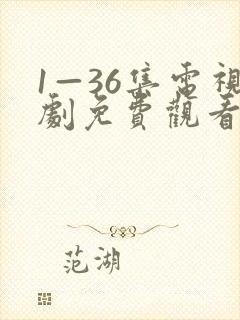 1—36集電視
劇免費觀看
范湖